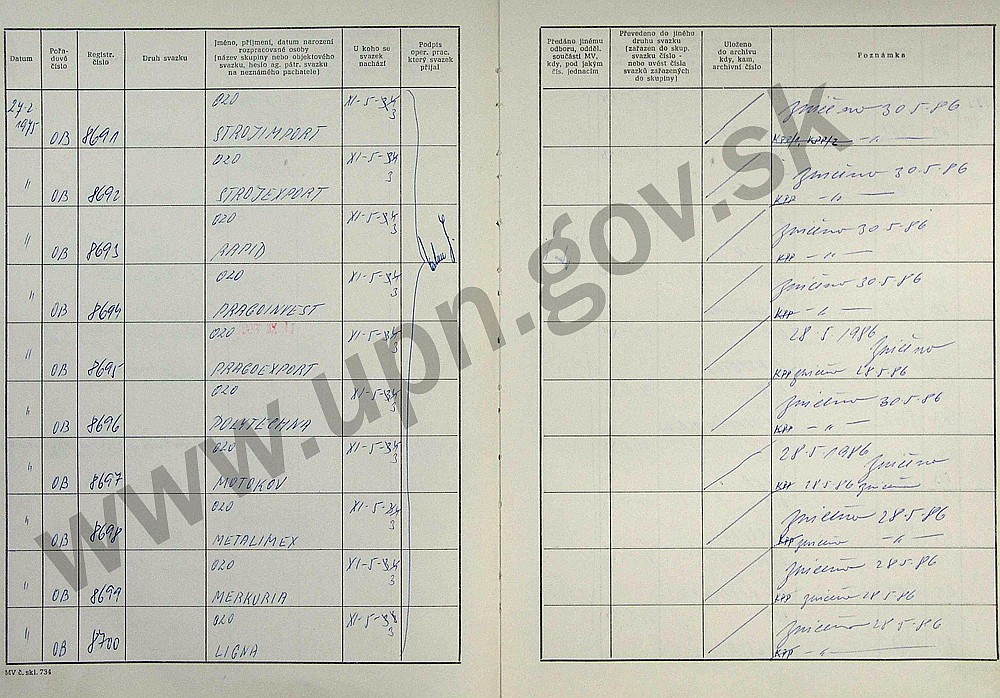 Datum
Pořa-
dové
číslo
Registr.
číslo
Druh svazku
Jméno, příjmení, datum narození
rozpracované osoby
(název skupiny nebo objektového
svazku, heslo ag. pátr. svazku
na neznámého pachatele)
U koho se
svazek
nachází
Podpis
oper. prac.
který svazek
přijal
Předáno jinému
odboru, odděl.
součásti MV,
kdy, pod jakým
čís. jednacím
Převedeno do jiného
druhu svazku
(zařazen do skup.
svazku číslo -
nebo uvést čísla
svazků zařazených
do skupiny)
Uloženo
do archivu
kdy, kam,
archivní číslo
Poznámka
1975
OB 8691 020 STROJIMPORT XI-5- 3
zničeno 30.5.86
KPP/1, KPP/2 -"-
" OB 8692 020 STROJEXPORT XI-5- 3
zničeno 30.5.86
KPP -"-
" OB 8693 020 RAPID XI-5- 3
zničeno 30.5.86
KPP -"-
" OB 8694 020 PRAGOINVEST XI-5- 3
zničeno 30.5.86
KPP -"-
" OB 8695 020 PRAGOEXPORT XI-5- 3
28.5.1986
zničeno
KPP zničeno 28.5.86
" OB 8696 020 POLYTECHNA XI-5- 3
zničeno 30.5.86
KPP -"-
" OB 8697 020 MOTOKOV XI-5- 3
28.5.1986
zničeno
KPP 28.5.86 zničeno
" OB 8698 020 METALIMEX XI-5- 3
zničeno 28.5.86
KPP zničeno -"-
" OB 8699 020 MERKURIA XI-5- 3
zničeno 28.5.86
KPP zničeno 28.5.86
" OB 8700 020 LIGNA XI-5- 3
zničeno 28.5.86
KPP -"-
MV č. skl. 734
www.upn.gov.sk